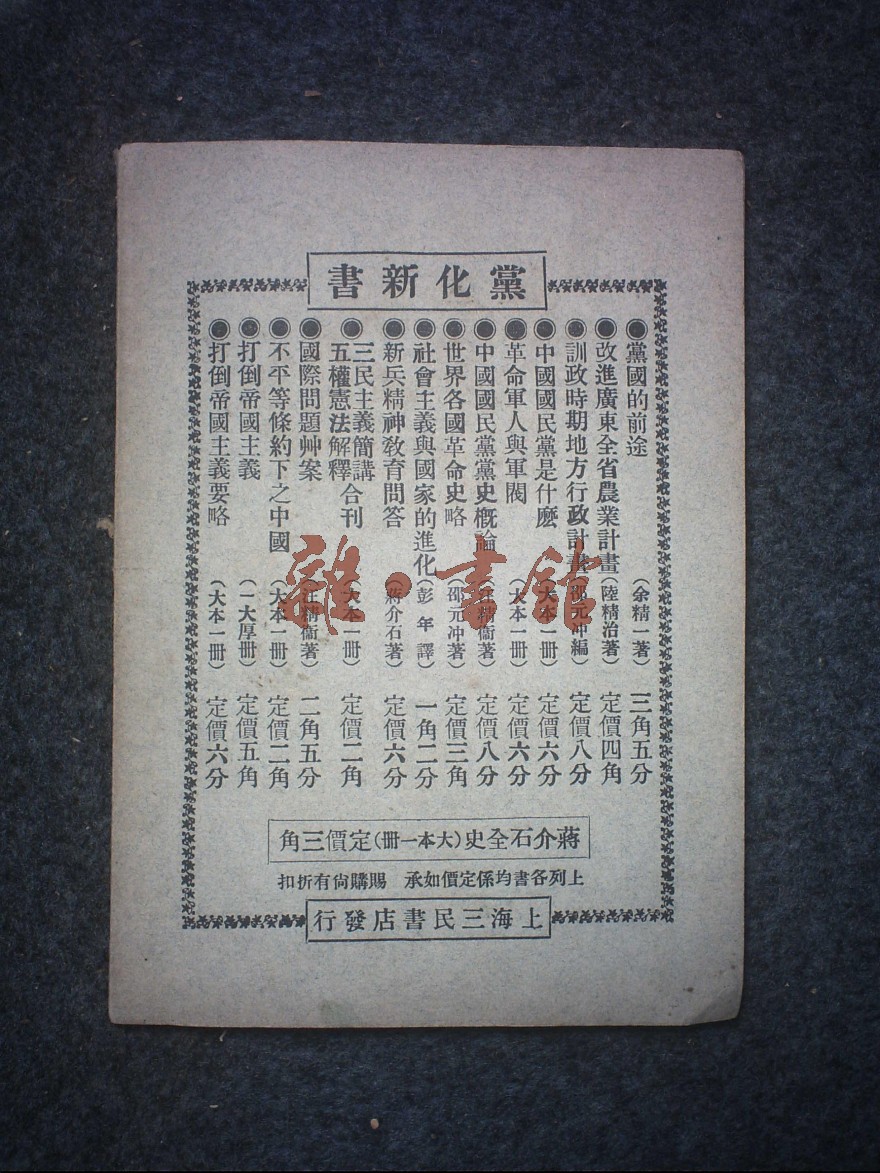 黨化新書
●黨國的前途 (余精一著) 三角五分
●改進廣東全省農業計畫 (陸精治著) 定價四角
●訓政時期地方行政計畫 (邵元冲編) 定價八分
●中國國民黨是什麽 (大本一册) 定價六分
●革命軍人與軍閥 (大本一册) 定價六分
●中國國民黨黨史概論 (汪精衞著) 定價八分
●世界各國革命史略 (邵元冲著) 定價三角
●社會主義與國家的進化 (彭年譯) 一角二分
●新兵精神教育問答 (蔣介石著) 定價六分
●三民主義簡講
五權憲法解釋 合刊 (大本一册) 定價二角
●國際問題艸案 (汪精衞著) 二角五分
●不平等條約下之中國 (大本一册) 定價二角
●打倒帝國主義 (一大厚册) 定價五角
●打倒帝國主義要略 (大本一册) 定價六分
蔣介石全史(大本一册)定價三角
上列各書均係定價如承 賜購尙有折扣
上海三民書店發行
雜·書館